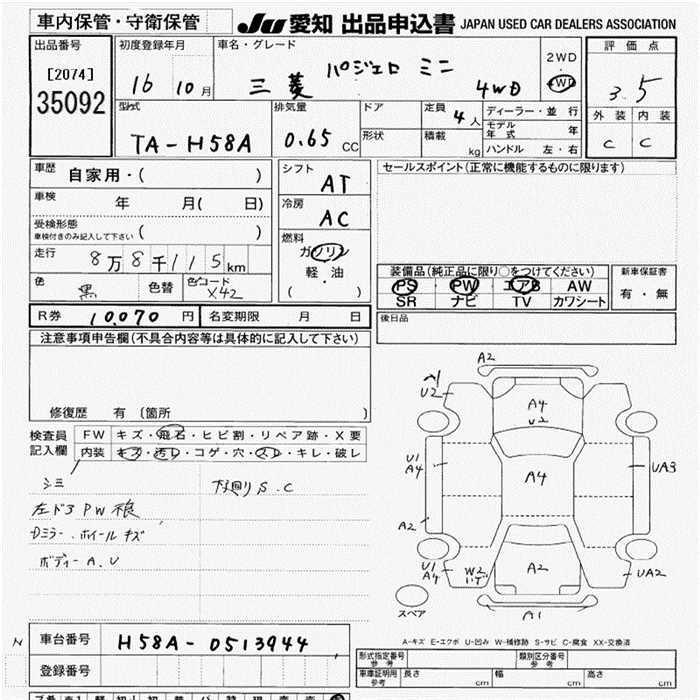 車内保管・守衛保管 JU 愛知 出品申込書 JAPAN USED CAR DEALERS ASSOCIATION
出品番号 [2074] 35092
初度登録年月 16 10月
車名・グレード 三菱 パジェロ ミニ 4WD
2WD 4WD
評価点 3.5
外装 内装
C C
型式 TA-H58A
排気量 0.65 CC
ドア
形状
定員 4人
積載 kg
ディーラー・並行
モデル年式 年
ハンドル 左・右
車歴 自家用・( )
車検 年 月( 日)
受検形態 ( )
車検付きのみ記入して下さい
走行 8万8千115km
色 黒 色替 色コード X42
シフト AT
冷房 AC
燃料 ガソリン
軽・油
( )
セールスポイント(正常に機能するものに限ります)
装備品(純正品に限り○をつけてください)
PS PW エアB AW
SR ナビ TV カワシート
新車保証書
有・無
R券 10,070 円 名変期限 月 日
後日品
注意事項申告欄(不具合内容等は具体的に記入して下さい)
修復歴 有 (箇所 )
検査員記入欄
FW キズ・飛石・ヒビ割・リペア跡・X要
内装 キズ・汚レ・コゲ・穴・スレ・キレ・破レ
シミ
下廻りS.C
左ドア PW
Dミラー.ホイールキズ
ボディーA.U
A2
U2
A4
U2
U1
A4
A4
UA3
A2
U1
A4
W2
A2
UA2
A1
スペア
A-キズ E-エクボ U-凹み W-補修跡 S-サビ C-腐食 XX-交換済
車台番号 H58A-0513944
登録番号
形式指定番号 参考
類別区分番号 参考
車庫証明用 参考 長さ cm 幅 cm 高さ cm